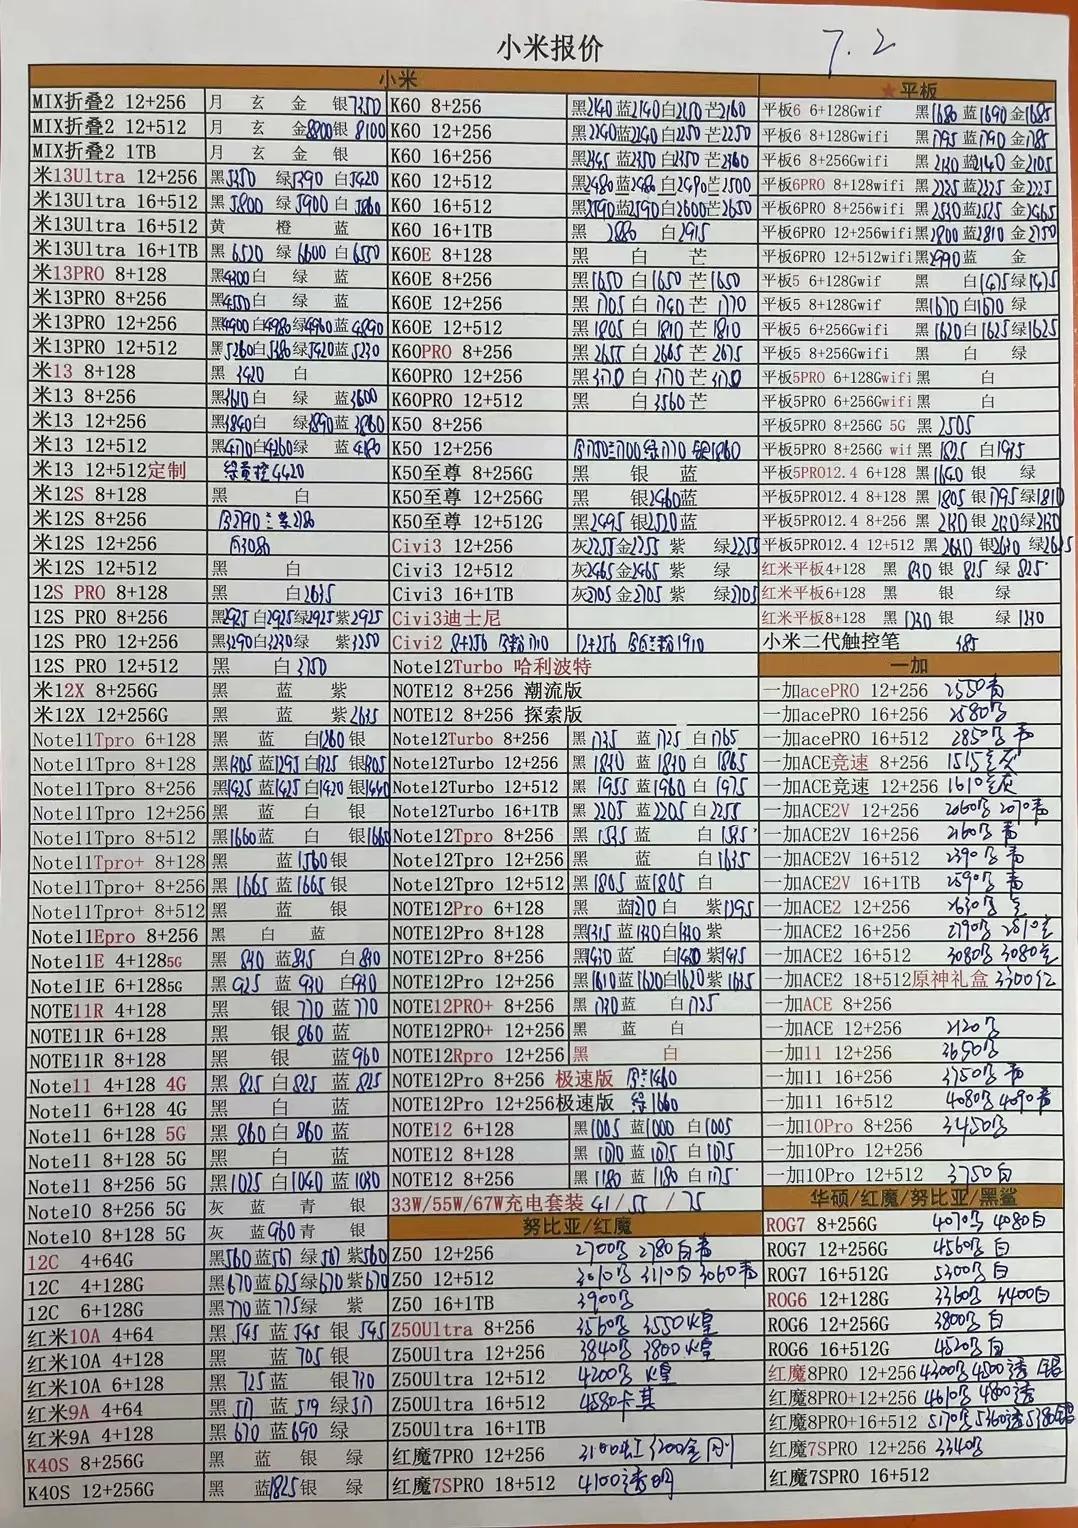 小米报价 7.2
小米
MIX折叠2 12+256 月 玄 金 银7350
MIX折叠2 12+512 月 玄 金8800银 8100
MIX折叠2 1TB 月 玄 金 银
米13Ultra 12+256 黑5350 绿5390 白5420
米13Ultra 16+512 黑5800 绿5900 白5860
米13Ultra 16+512 黄 橙 蓝
米13Ultra 16+1TB 黑6520 绿6600 白6550
米13PRO 8+128 黑4300白 绿 蓝
米13PRO 8+256 黑4550白 绿 蓝
米13PRO 12+256 黑4900白4980绿4960蓝4890
米13PRO 12+512 黑5260白5380绿5420蓝5230
米13 8+128 黑 3420 白
米13 8+256 黑3610白 绿 蓝3600
米13 12+256 黑3840白 绿3890蓝3860
米13 12+512 黑4170白4260绿 蓝4180
米13 12+512定制 4420
米12S 8+128 黑 白
米12S 8+256
米12S 12+256 3080
米12S 12+512 黑 白
12S PRO 8+128 黑 白2635
12S PRO 8+256 黑2925白2925绿2925紫2925
12S PRO 12+256 黑3290白3230绿 紫3250
12S PRO 12+512 黑 白3750
米12X 8+256G 黑 蓝 紫
米12X 12+256G 黑 蓝 紫2635
Note11Tpro 6+128 黑 蓝 白1260银
Note11Tpro 8+128 黑1305蓝1295白1325银1305
Note11Tpro 8+256 黑1425蓝1425白1420银1440
Note11Tpro 12+256 黑 蓝 白 银
Note11Tpro 8+512 黑1660蓝 白 银1660
Note11Tpro+ 8+128 黑 蓝1560银
Note11Tpro+ 8+256 黑1665蓝1665银
Note11Tpro+ 8+512 黑 蓝 银
Note11Epro 8+256 黑 白 蓝
Note11E 4+1285G 黑 830蓝835 白830
Note11E 6+1285G 黑 925蓝 930 白930
NOTE11R 4+128 黑 银770蓝770
NOTE11R 6+128 黑 银860蓝
NOTE11R 8+128 黑 银 蓝960
Note11 4+128 4G 黑 825白825蓝825
Note11 6+128 4G 黑 白 蓝
Note11 6+128 5G 黑 860白860蓝
Note11 8+128 5G 黑 白 蓝
Note11 8+256 5G 黑1025白1040蓝1030
Note10 8+256 5G 灰 蓝 青 银
Note10 8+128 5G 灰 蓝960青 银
12C 4+64G 黑560蓝567绿567紫560
12C 4+128G 黑670蓝675绿670紫670
12C 6+128G 黑770蓝775绿 紫
红米10A 4+64 黑545蓝545银545
红米10A 4+128 黑 蓝705银
红米10A 6+128 黑 725蓝 银730
红米9A 4+64 黑 517蓝519绿517
红米9A 4+128 黑 670蓝690绿
K40S 8+256G 黑 蓝 银 绿
K40S 12+256G 黑 蓝1825银 绿
K60 8+256 黑2140蓝2140白2150芒2160
K60 12+256 黑2240蓝2240白2250芒2250
K60 16+256 黑2345蓝2350白2350芒2360
K60 12+512 黑2480蓝2486白2490芒2500
K60 16+512 黑2590蓝2590白2600芒2650
K60 16+1TB 黑 2880 白2915
K60E 8+128 黑 白 芒
K60E 8+256 黑1650白1650芒1650
K60E 12+256 黑1705白1740芒1770
K60E 12+512 黑1805白1810芒1810
K60PRO 8+256 黑2655白2665芒2675
K60PRO 12+256 黑3170白3170芒3170
K60PRO 12+512 黑 白3560芒
K50 8+256
K50 12+256
K50至尊 8+256G 黑 银 蓝
K50至尊 12+256G 黑 银2460蓝
K50至尊 12+512G 黑2495银2520蓝
Civi3 12+256 灰2255金2255紫 绿2255
Civi3 12+512 灰2465金2465紫 绿
Civi3 16+1TB 灰2705金2705紫 绿2705
Civi3迪士尼
Civi2 8+256 1710 12+256 1910
Note12Turbo 哈利波特
NOTE12 8+256 潮流版
NOTE12 8+256 探索版
Note12Turbo 8+256 黑1735蓝1725白1765
Note12Turbo 12+256 黑1830蓝1830白1865
Note12Turbo 12+512 黑1955蓝1960白1975
Note12Turbo 16+1TB 黑2205蓝2205白2255
Note12Tpro 8+256 黑1535蓝 白1545
Note12Tpro 12+256 黑 蓝 白1635
Note12Tpro 12+512 黑1805蓝1805白
NOTE12Pro 6+128 黑 蓝1270白 紫1295
NOTE12Pro 8+128 黑1315蓝1330白1330紫
NOTE12Pro 8+256 黑1430蓝 白1420紫1415
NOTE12Pro 12+256 黑1610蓝1620白1620紫1635
NOTE12PRO+ 8+256 黑1730蓝 白1735
NOTE12PRO+ 12+256 黑 蓝 白
NOTE12Rpro 12+256 黑 白
NOTE12Pro 8+256 极速版 1460
NOTE12Pro 12+256极速版 绿1660
NOTE12 6+128 黑1005蓝1000白1005
NOTE12 8+128 黑1070蓝1075白1075
NOTE12 8+256 黑1180蓝1180白1175
33W/55W/67W充电套装 41/55/75
努比亚/红魔
Z50 12+256 2700 2780白
Z50 12+512 3010 3110白3060
Z50 16+1TB 3900
Z50Ultra 8+256 3560 3550煌
Z50Ultra 12+256 3840 3800煌
Z50Ultra 12+512 4200 煌
Z50Ultra 16+512 4580卡其
Z50Ultra 16+1TB
红魔7PRO 12+256 3100 3200
红魔7SPRO 18+512 4100透明
★平板
平板6 6+128Gwif 黑1680蓝1690金1685
平板6 8+128Gwif 黑1795蓝1790金1785
平板6 8+256Gwif 黑2130蓝2140金2105
平板6PRO 8+128wifi 黑2235蓝2225金2225
平板6PRO 8+256wifi 黑2530蓝2525金2465
平板6PRO 12+256wifi黑2800蓝2810金2750
平板6PRO 12+512wifi黑2990蓝 金
平板5 6+128Gwif 黑 白1475绿1475
平板5 8+128Gwif 黑1670白1670绿
平板5 6+256Gwif 黑1620白1625绿1625
平板5 8+256Gwifi 黑 白 绿
平板5PRO 6+128Gwifi黑 白
平板5PRO 6+256Gwifi黑 白
平板5PRO 8+256G 5G 黑2505
平板5PRO 8+256G wif 黑1825白1935
平板5PRO12.4 6+128 黑1640银 绿
平板5PRO12.4 8+128 黑1805银1795绿1810
平板5PRO12.4 8+256 黑2130银2130绿2130
平板5PRO12.4 12+512 黑2630银2630绿2625
红米平板4+128 黑 830银 825绿825
红米平板6+128 黑 银 绿
红米平板8+128 黑1230银 绿1230
小米二代触控笔 385
一加
一加acePRO 12+256 2550青
一加acePRO 16+256 2580
一加acePRO 16+512 2850
一加ACE竞速 8+256 1515
一加ACE竞速 12+256 1610
一加ACE2V 12+256 2060 2070青
一加ACE2V 16+256 2160 青
一加ACE2V 16+512 2390 青
一加ACE2V 16+1TB 2590 青
一加ACE2 12+256 2630
一加ACE2 16+256 2790 2810
一加ACE2 16+512 3080 3080
一加ACE2 18+512原神礼盒 3300红
一加ACE 8+256
一加ACE 12+256 2120
一加11 12+256 3650
一加11 16+256 3750
一加11 16+512 4080 4090青
一加10Pro 8+256 3450
一加10Pro 12+256
一加10Pro 12+512 3750白
华硕/红魔/努比亚/黑鲨
ROG7 8+256G 4070 4080白
ROG7 12+256G 4560 白
ROG7 16+512G 5300 白
ROG6 12+128G 3360 3400白
ROG6 12+256G 3800 白
ROG6 16+512G 4520 白
红魔8PRO 12+256 4300 4500透 银
红魔8PRO+12+256 4610 4800透
红魔8PRO+16+512 5170 5360透5380银
红魔7SPRO 12+256 3340
红魔7SPRO 16+512